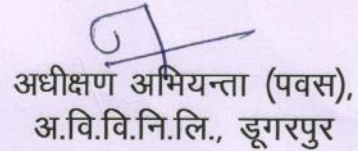 अधीक्षण अभियन्ता (पवस),
अ.वि.वि.नि.लि., डूगरपुर